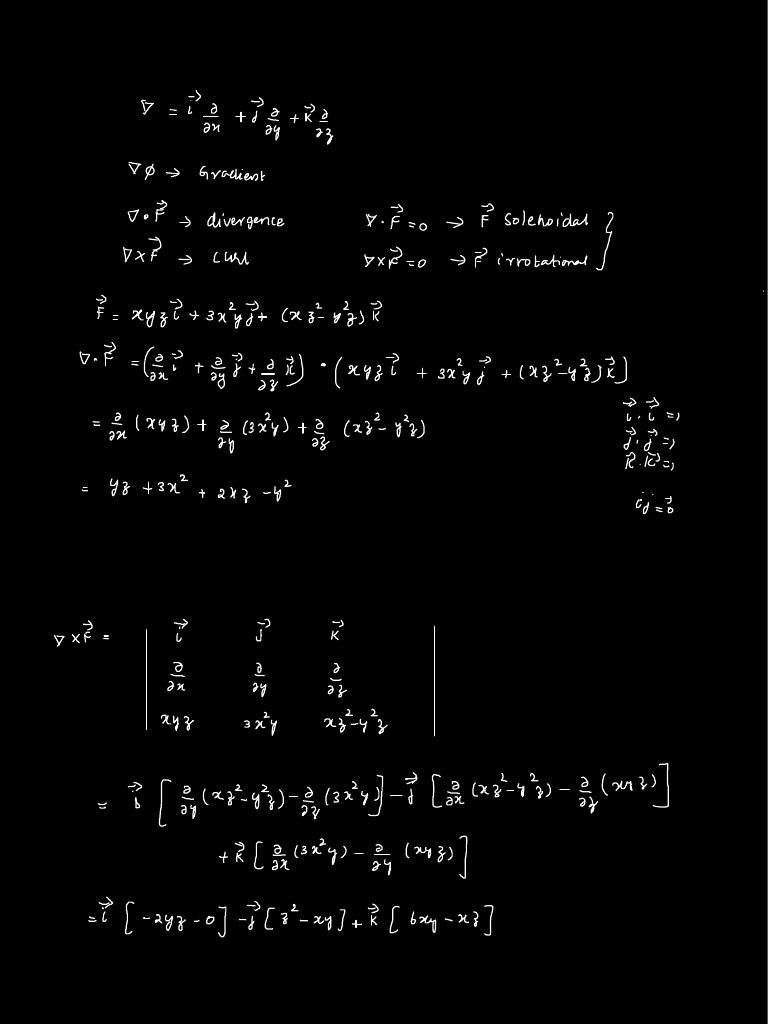 ∇ = i⃗ ∂/∂x + j⃗ ∂/∂y + k⃗ ∂/∂z
∇φ → Gradient
∇·F⃗ → divergence ∇·F⃗ = 0 → F⃗ Solenoidal }
∇×F⃗ → curl ∇×F⃗ = 0 → F⃗ irrotational
F⃗ = xyz i⃗ + 3x²y j⃗ + (xz² - y²z) k⃗
∇·F⃗ = (∂/∂x i⃗ + ∂/∂y j⃗ + ∂/∂z k⃗) · (xyz i⃗ + 3x²y j⃗ + (xz² - y²z) k⃗)
= ∂/∂x (xyz) + ∂/∂y (3x²y) + ∂/∂z (xz² - y²z)
i⃗·i⃗ = 1
j⃗·j⃗ = 1
k⃗·k⃗ = 1
= yz + 3x² + 2xz - y²
ij = 0⃗
∇×F⃗ = | i⃗ j⃗ k⃗ |
∂/∂x ∂/∂y ∂/∂z
xyz 3x²y xz² - y²z
= i⃗ [∂/∂y (xz² - y²z) - ∂/∂z (3x²y)] - j⃗ [∂/∂x (xz² - y²z) - ∂/∂z (xyz)]
+ k⃗ [∂/∂x (3x²y) - ∂/∂y (xyz)]
= i⃗ [-2yz - 0] - j⃗ [z² - xy] + k⃗ [6xy - xz]